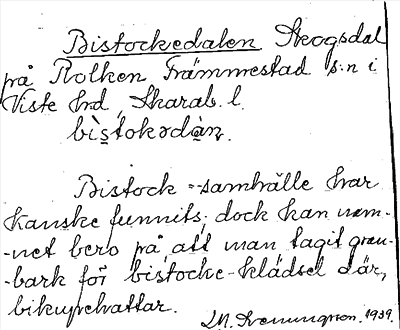 Bistockedalen Skogsdal
på Rolken Främmestad s:n i
Viste hd, Skarab. l.
bìstokədàn.
Bistock-samhälle har
kanske funnits; dock kan nam-
-net bero på, att man tagit gran-
-bark för bistocke-klädsel där,
bikupehattar.
1939.